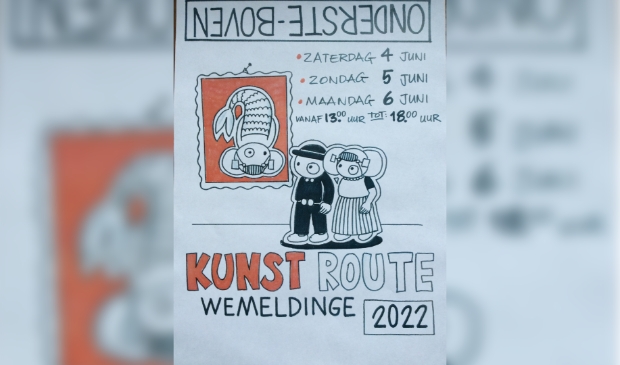 ONDERSTE-BOVEN
• ZATERDAG 4 JUNI
• ZONDAG 5 JUNI
• MAANDAG 6 JUNI
VANAF 13.00 UUR TOT 18.00 UUR
KUNST ROUTE
WEMELDINGE 2022